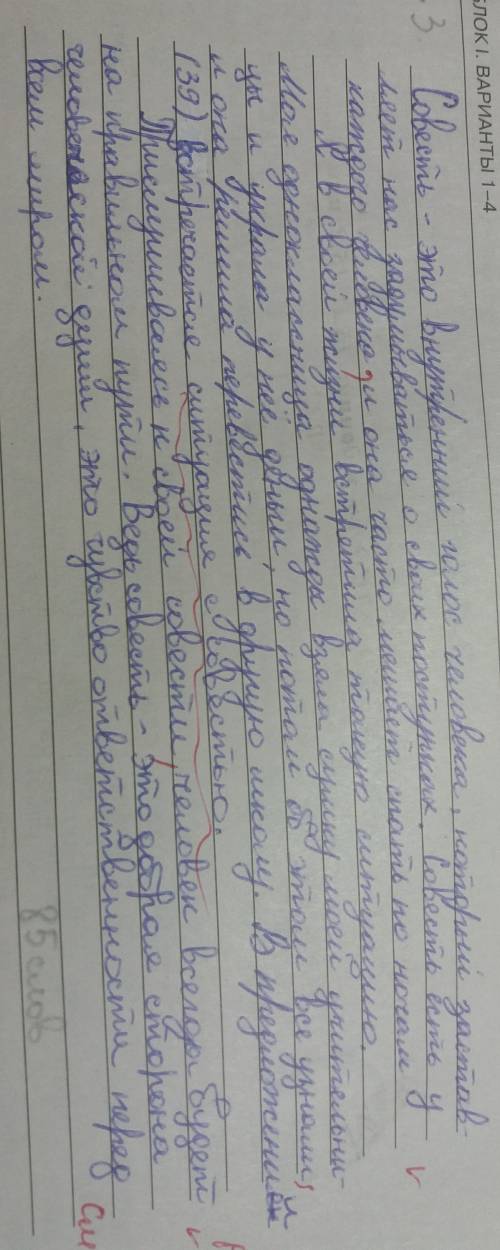 БЛОК I. ВАРИАНТЫ 1–4
3
Совесть - это внутренний голос человека, который застав-
ляет нас задумываться о своих поступках. Совесть есть у
каждого и она часто мешает спать по ночам
Я в своей жизни встретила такую ситуацию.
Моя одноклассница однажды взяла сумку моей учительни-
цы и украла у неё деньги, но потом об этом все узнали, и
и она решила перевестись в другую школу. В предложении
(39) встречается ситуация с совестью.
Прислушиваясь к своей совести, человек всегда будет
на правильном пути. Ведь совесть - это добрая сторона
человеческой души, это чувство ответственности перед
всем миром.
85 слов